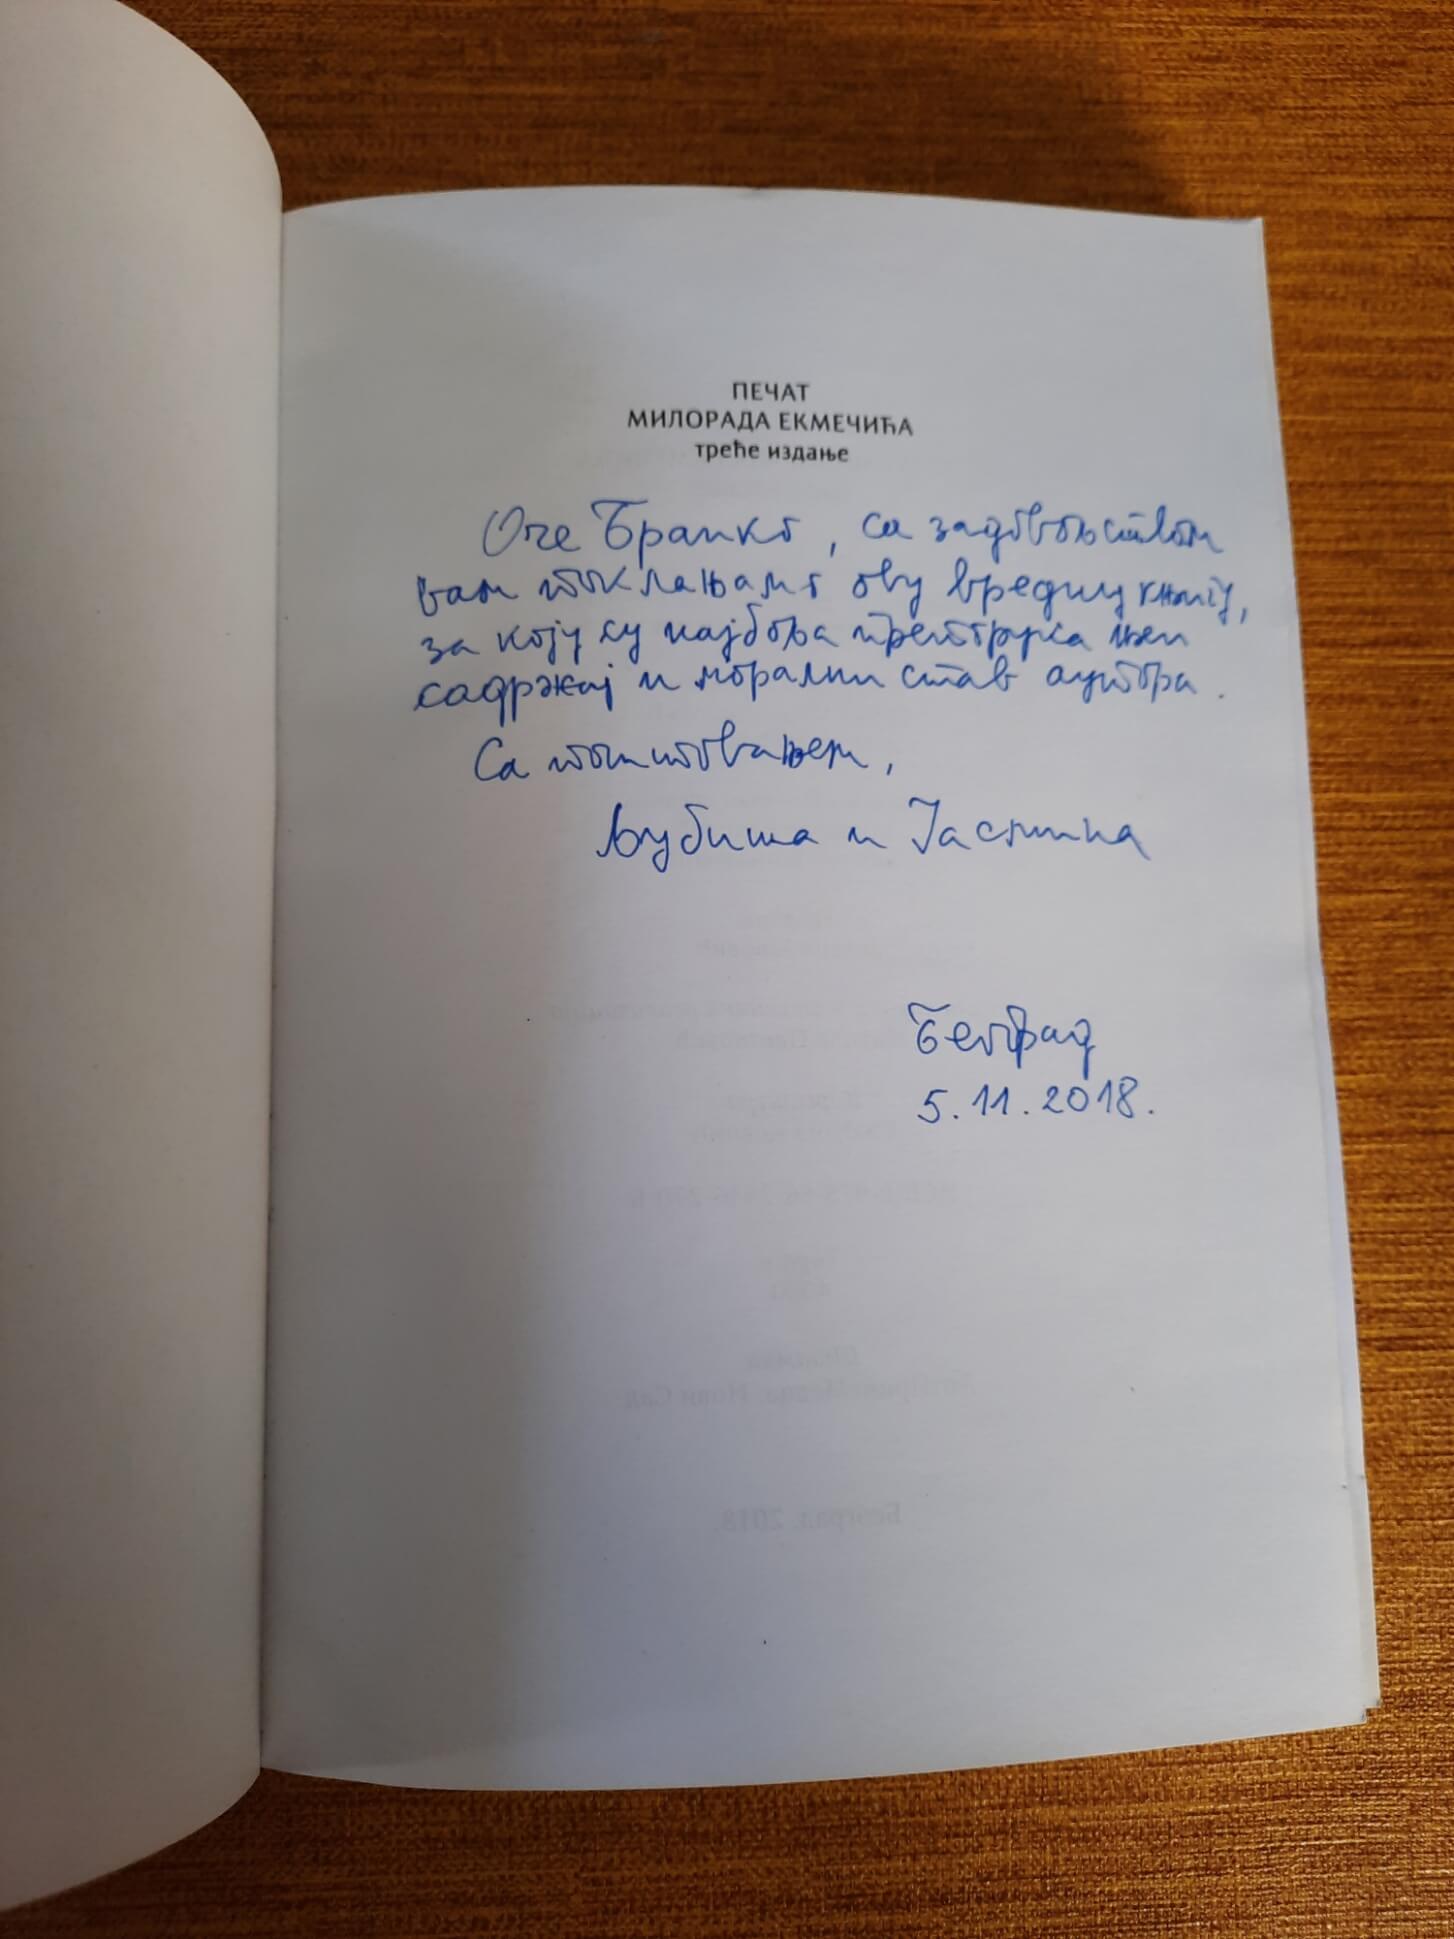 ПЕЧАТ
МИЛОРАДА ЕКМЕЧИЋА
треће издање
Оче Бранко, са задовољством
вам поклањамо ову вредну књигу,
за коју су најбоља препорука њен
садржај и морални став аутора.
Са поштовањем,
Љубиша и Јасмина
Београд
5.11.2018.
Београд, 2018.